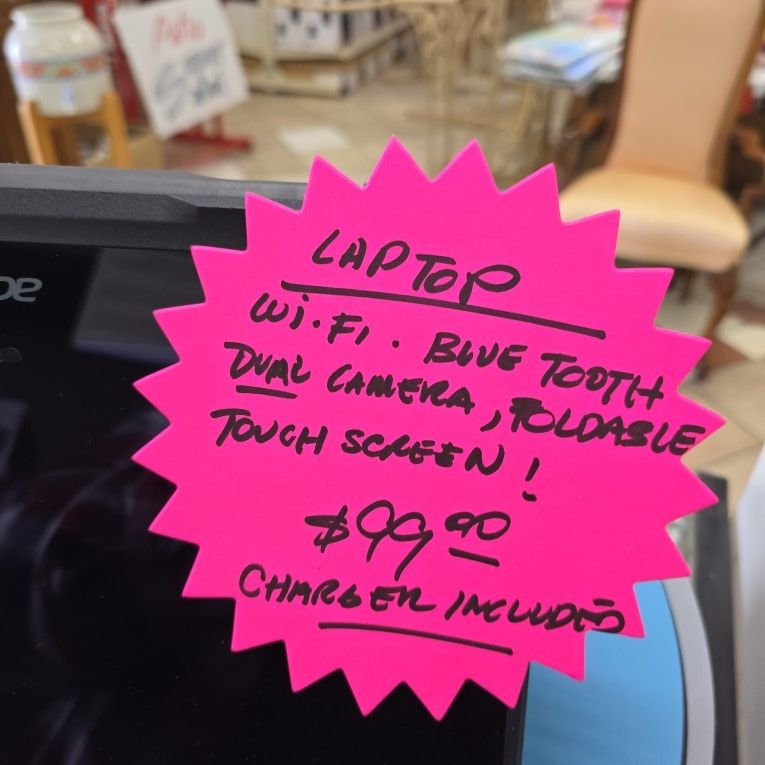 LAPTOP
Wi.Fi. BLUE TOOTH
DUAL CAMERA, FOLDABLE
TOUCH SCREEN!
$99.90
CHARGER INCLUDED